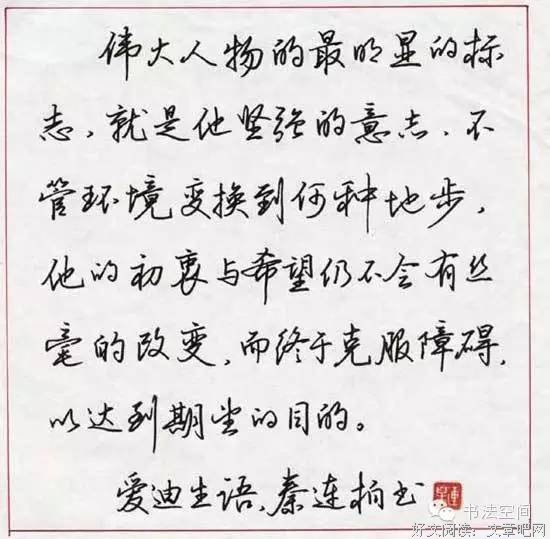 伟大人物的最明显的标
志，就是他坚强的意志，不
管环境变换到何种地步，
他的初衷与希望仍不会有丝
毫的改变，而终于克服障碍，
以达到期望的目的。
爱迪生语，秦连柏书
书法空间
好文阅读：文章吧网